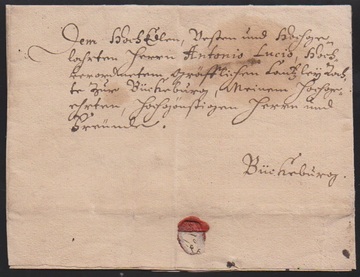 Dem HochEdlen, Vesten und Hochge-
lahrten Herrn Antonio Lucio, Hoch-
verordnetem gräfflichen Cantzley Rah-
te zur Bückeburg, Meinem Hochge-
ehrten, hochgönstigen Herrn und
Freünde.
Bückeburg.